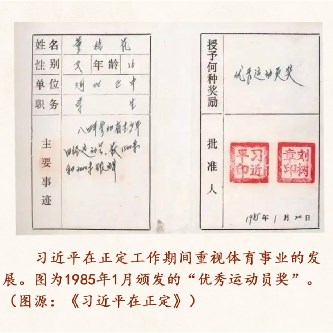 姓名 董 花
性别 女 年龄 16
单位 中
职务 学生
主要事迹
八四年参加省青少年
田径运动会，获1500米
和3000米银牌
授予何种奖励
优秀运动员奖
批准人
习近平印
刘钢章印
1985年1月20日
习近平在正定工作期间重视体育事业的发
展。图为1985年1月颁发的“优秀运动员奖”。
（图源：《习近平在正定》）